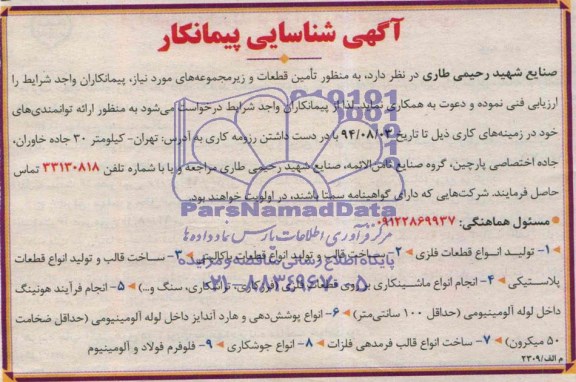 آگهی شناسایی پیمانکار
صنایع شهید رحیمی طاری در نظر دارد، به منظور تأمین قطعات و زیرمجموعه‌های مورد نیاز، پیمانکاران واجد شرایط را
ارزیابی فنی نموده و دعوت به همکاری نماید. لذا از پیمانکاران واجد شرایط درخواست می‌شود به منظور ارائه توانمندی‌های
خود در زمینه‌های کاری ذیل تا تاریخ ۹۴/۰۸/۰۳ با در دست داشتن رزومه کاری به آدرس: تهران- کیلومتر ۳۰ جاده خاوران،
جاده اختصاصی پارچین، گروه صنایع ثامن‌الائمه، صنایع شهید رحیمی طاری مراجعه و یا با شماره تلفن ۳۳۱۳۰۸۱۸ تماس
حاصل فرمایند. شرکت‌هایی که دارای گواهینامه سمتا باشند، در اولویت خواهند بود.
ParsNamadData
مسئول هماهنگی: ۰۹۱۲۲۸۶۹۹۳۷
مرکز فرآوری اطلاعات پارس نماد داده ها
۱- تولید انواع قطعات فلزی ۲- ساخت قالب و تولید انواع قطعات باکالیتی ۳- ساخت قالب و تولید انواع قطعات
پایگاه اطلاع رسانی مناقصه و مزایده
پلاستیکی ۴- انجام انواع ماشینکاری بر روی قطعات فلزی (فرزکاری، تراشکاری، سنگ و...) ۵- انجام فرآیند هونینگ
۰۲۱-۸۸۳۴۹۶۷۰
داخل لوله آلومینیومی (حداقل ۱۰۰ سانتی‌متر) ۶- انواع پوشش‌دهی و هارد آندایز داخل لوله آلومینیومی (حداقل ضخامت
۵۰ میکرون) ۷- ساخت انواع قالب فرمدهی فلزات ۸- انواع جوشکاری ۹- فلوفرم فولاد و آلومینیوم
م الف/۲۳۰۹